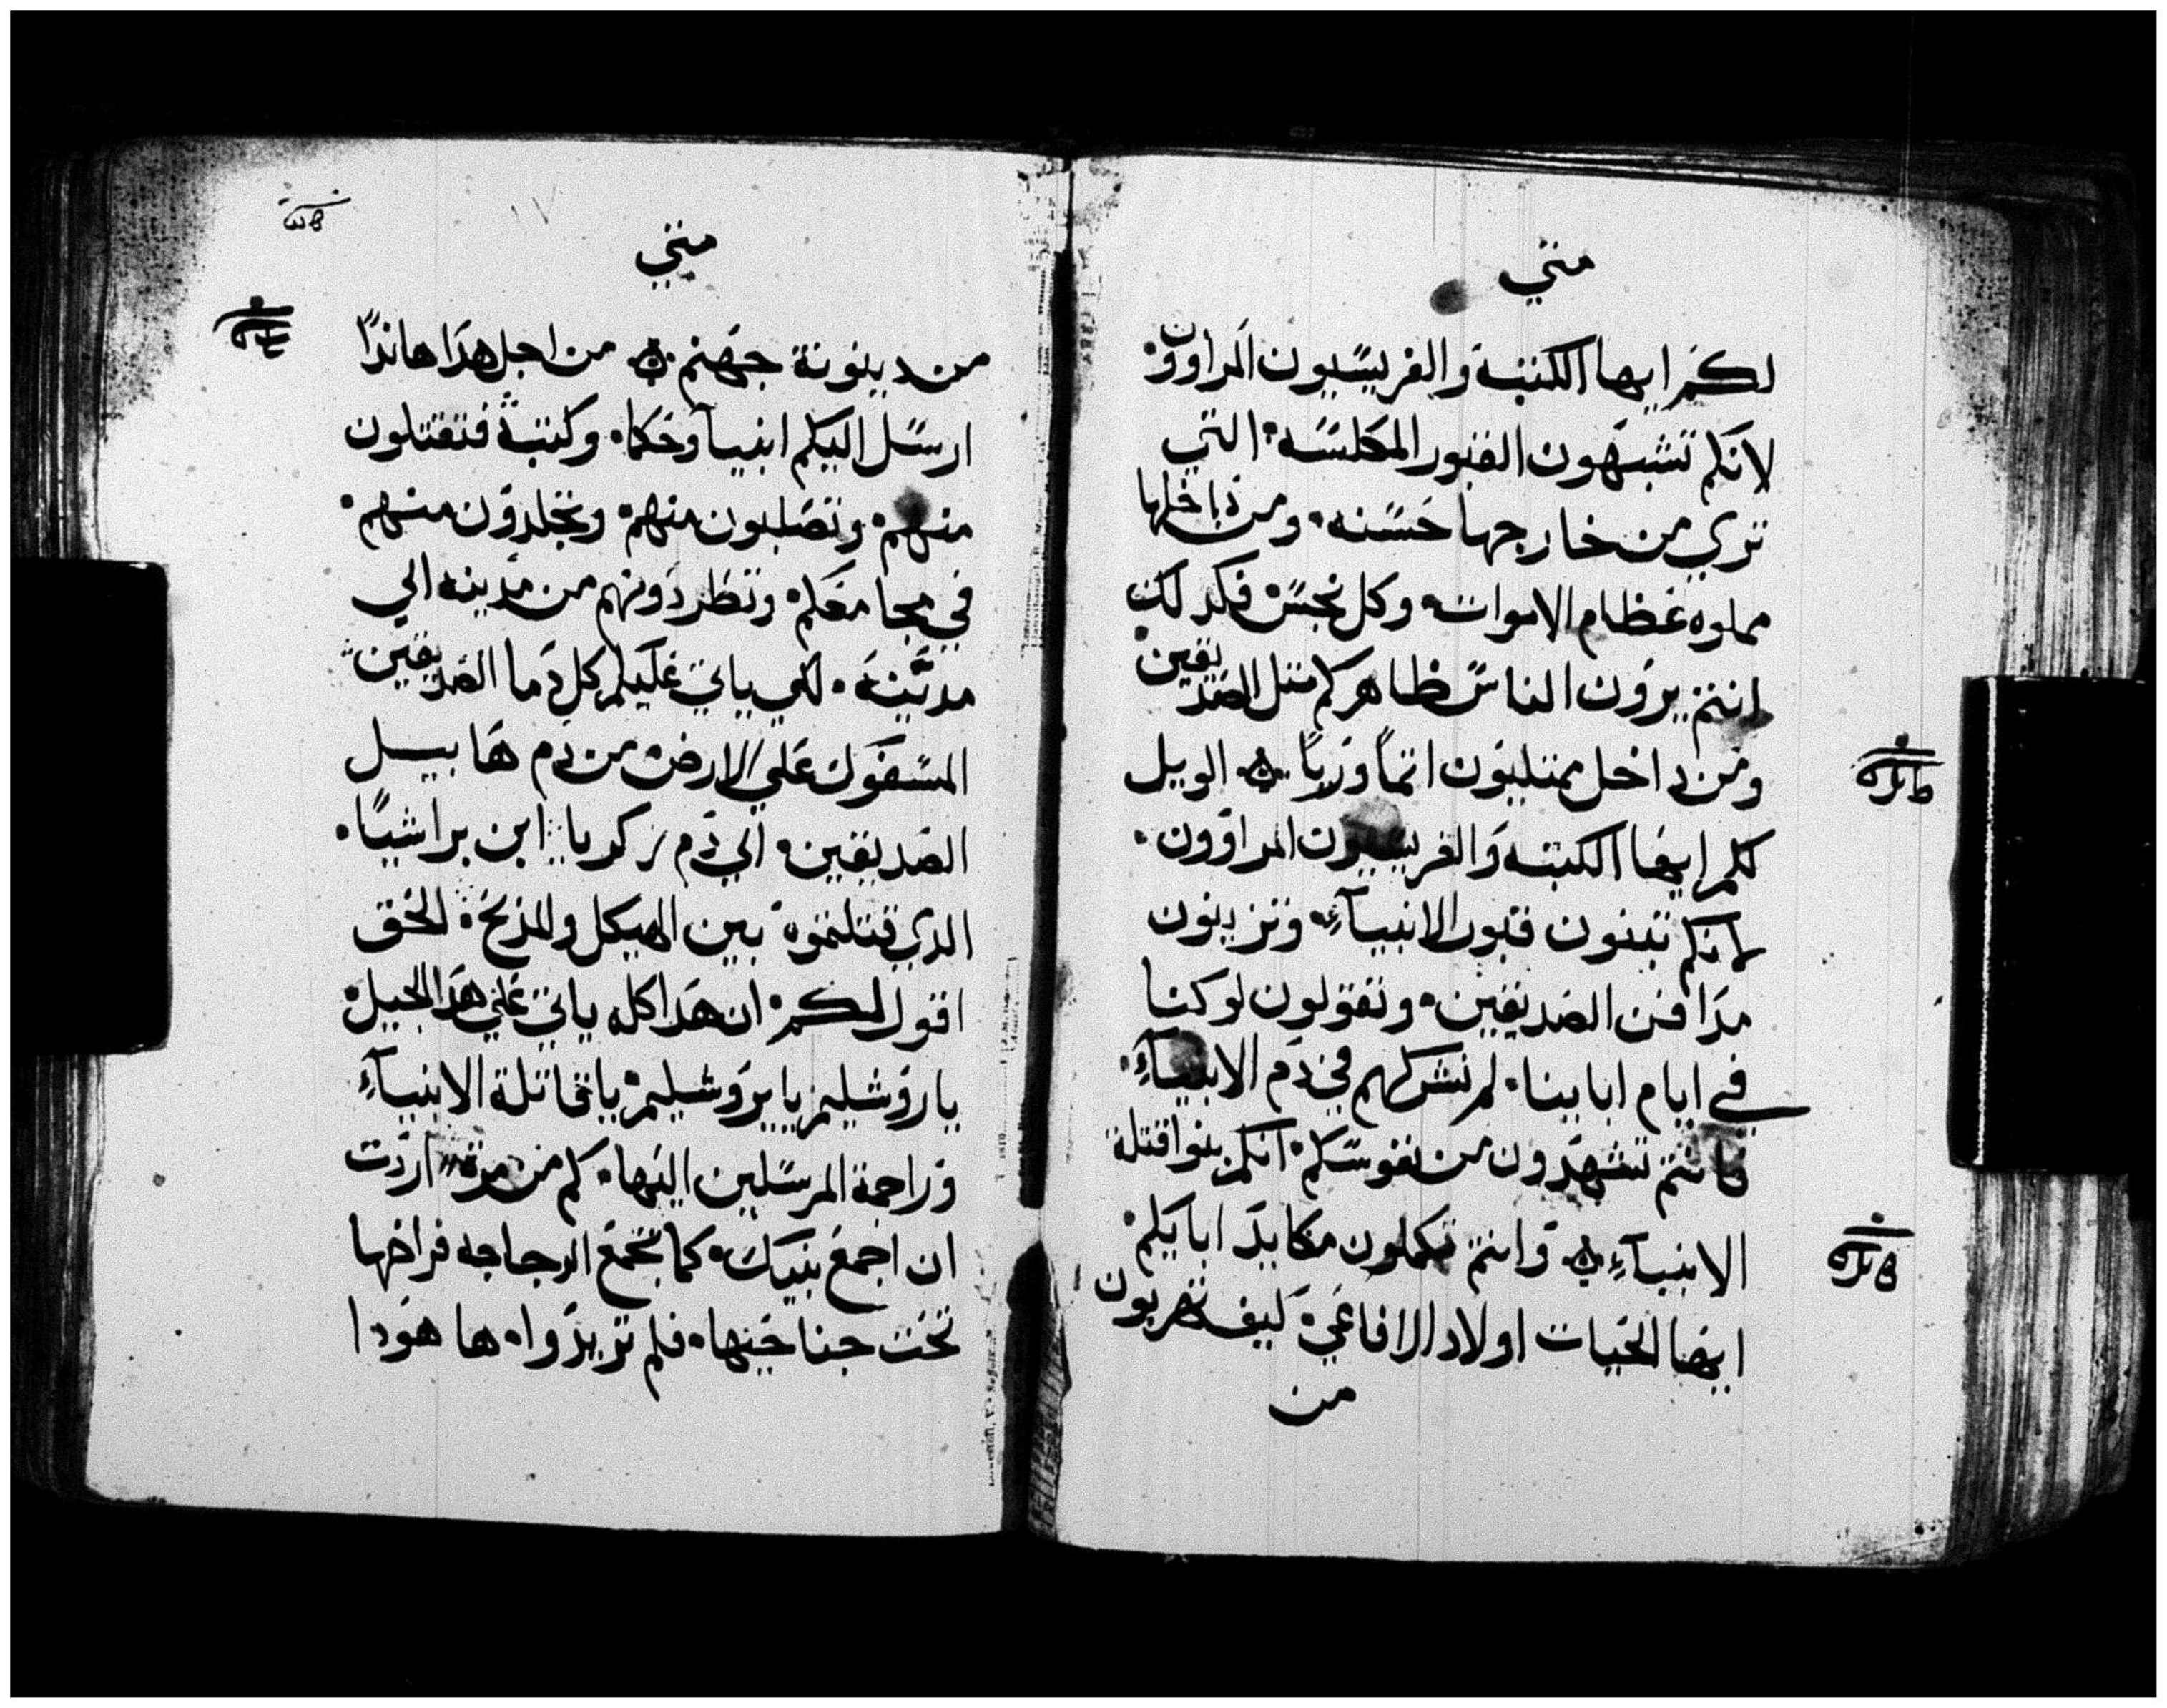 متي
لكم ايها الكتبة والفريسيون المراوون
لانكم تشبهون القبور المكلسه التي
تري من خارجها حسنه ومن داخلها
مملوه عظام الاموات وكل نجس فكدلك
انتم يرون الناس ظاهركم متل الصديقين
ومن داخل ممتليون اتماً ورياً الويل
لكم ايها الكتبه والفريسيون المراوون
لانكم تبنون قبور الانبيآء وتزينون
مدافن الصديقين وتقولون لو كنا
في ايام اباينا لم نشركهم في دم الانبيآء
فانتم تشهدون من نفوسكم انكم بنوا قتلة
الانبيآء وانتم تكملون مكايد ابايكم
ايها الحيات اولاد الافاعي كيف تهربون
من
متي
من دينونة جهنم من اجل هدا هاندا
ارسل اليكم انبيآ وحكما وكتبة فتقتلون
منهم وتصلبون منهم وتجلدون منهم
في مجامعكم وتطردونهم من مدينه الي
مدينة لكي ياتي عليكم كل دما الصديقين
المسفوك علي الارض من دم هابيل
الصديقين الي دم زكريا ابن براشيا
الدي قتلتموه بين الهيكل والمذبح الحق
اقول لكم ان هدا كله ياتي علي هدا الجيل
يا روشليم يا يروشليم يا قاتلة الانبيآء
وراجمة المرسلين اليها كم من مرة اردت
ان اجمع بنيك كما تجمع الدجاجه فراخها
تحت جناحيها فلم تريدوا ها هودا